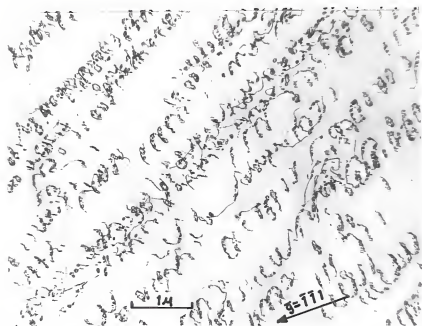 1μ
g=1̄1̄1